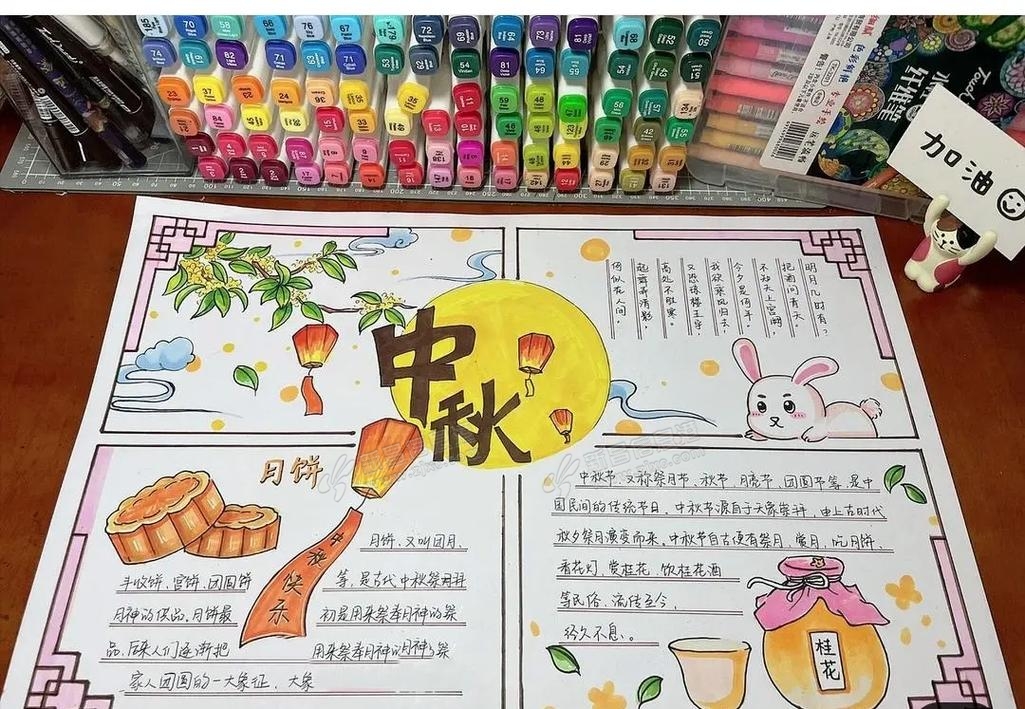 加油
中秋
明月几时有?
把酒问青天
不知天上宫阙,
今夕是何年。
我欲乘风归去,
又恐琼楼玉宇,
高处不胜寒。
起舞弄清影,
何似在人间。
月饼
中秋快乐
月饼、又叫团月、
丰收饼、宫饼、团圆饼
等,是古代中秋祭月拜
月神的供品。月饼最
初是用来祭奉月神的祭
品,后来人们逐渐把
用来祭奉月神的月神的祭
家人团圆的一大象征,大象
中秋节、又称祭月节、秋节、月亮节、团圆节等,是中
国民间的传统节日。中秋节源自于天象崇拜,由上古时代
秋夕祭月演变而来。中秋节自古便有祭月、赏月、吃月饼、
看花灯、赏桂花、饮桂花酒
等民俗,流传至今,
经久不息。
桂花